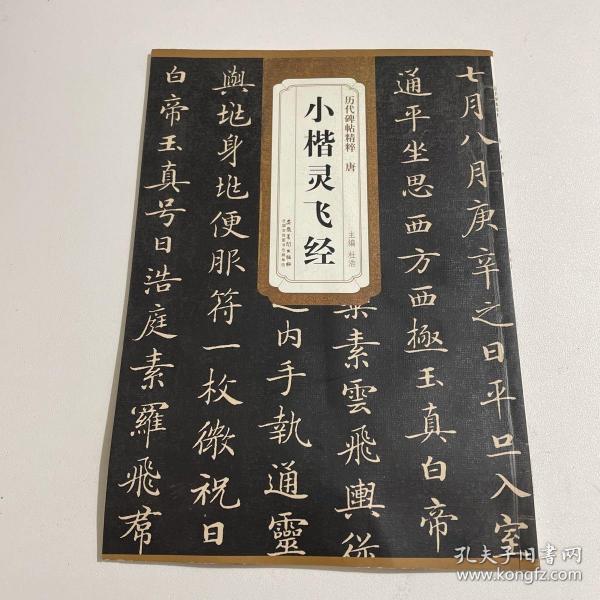 七月八月庚辛之日平旦入室
通平坐思西方西極玉真白帝
素雲飛輿從
内手執通靈
與妣身妣便服符一枚微祝日
白帝玉真号日浩庭素羅飛帬
历代碑帖精粹 唐
小楷灵飞经
主编 杜浩
安徽美术出版社
孔夫子旧书网
www.kongfz.com